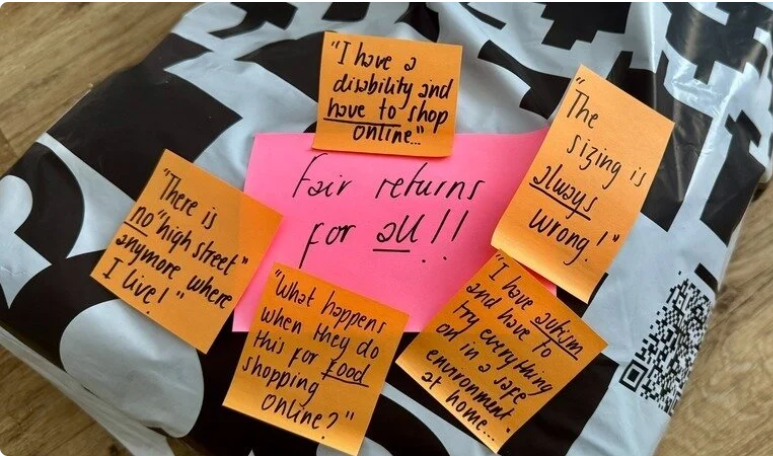 "I have a
disability and
have to shop
online..."
Fair returns
for all!!
"The
sizing is
always
wrong!"
"There is
no "high street"
anymore where
I live!"
"What happens
when they do
this for food
shopping
online?"
"I have autism
and have to
try everything
on in a safe
environment
at home...